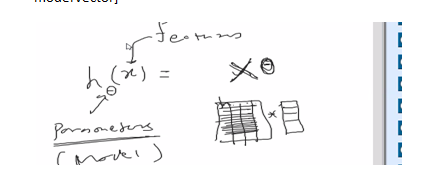 modelvector]
Features
h_θ(x) = Xθ
x
Parameters
(Model)